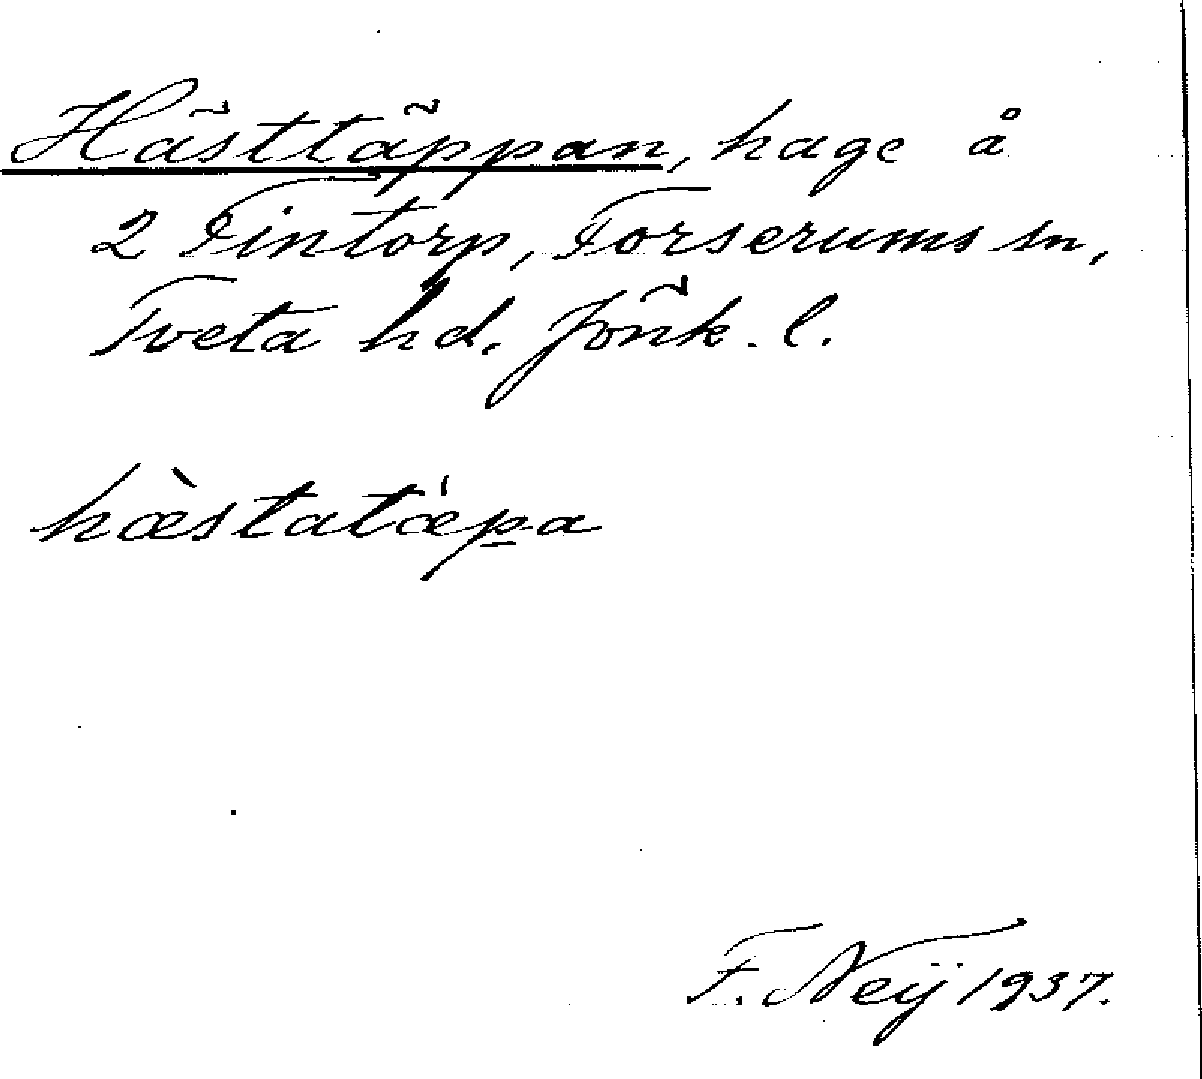 Hästtäppan, hage å
2 Fintorp, Forserums sn,
Tveta hd. Jönk. l.
hæ̀statæ̍p̠a
F. Neij 1937.